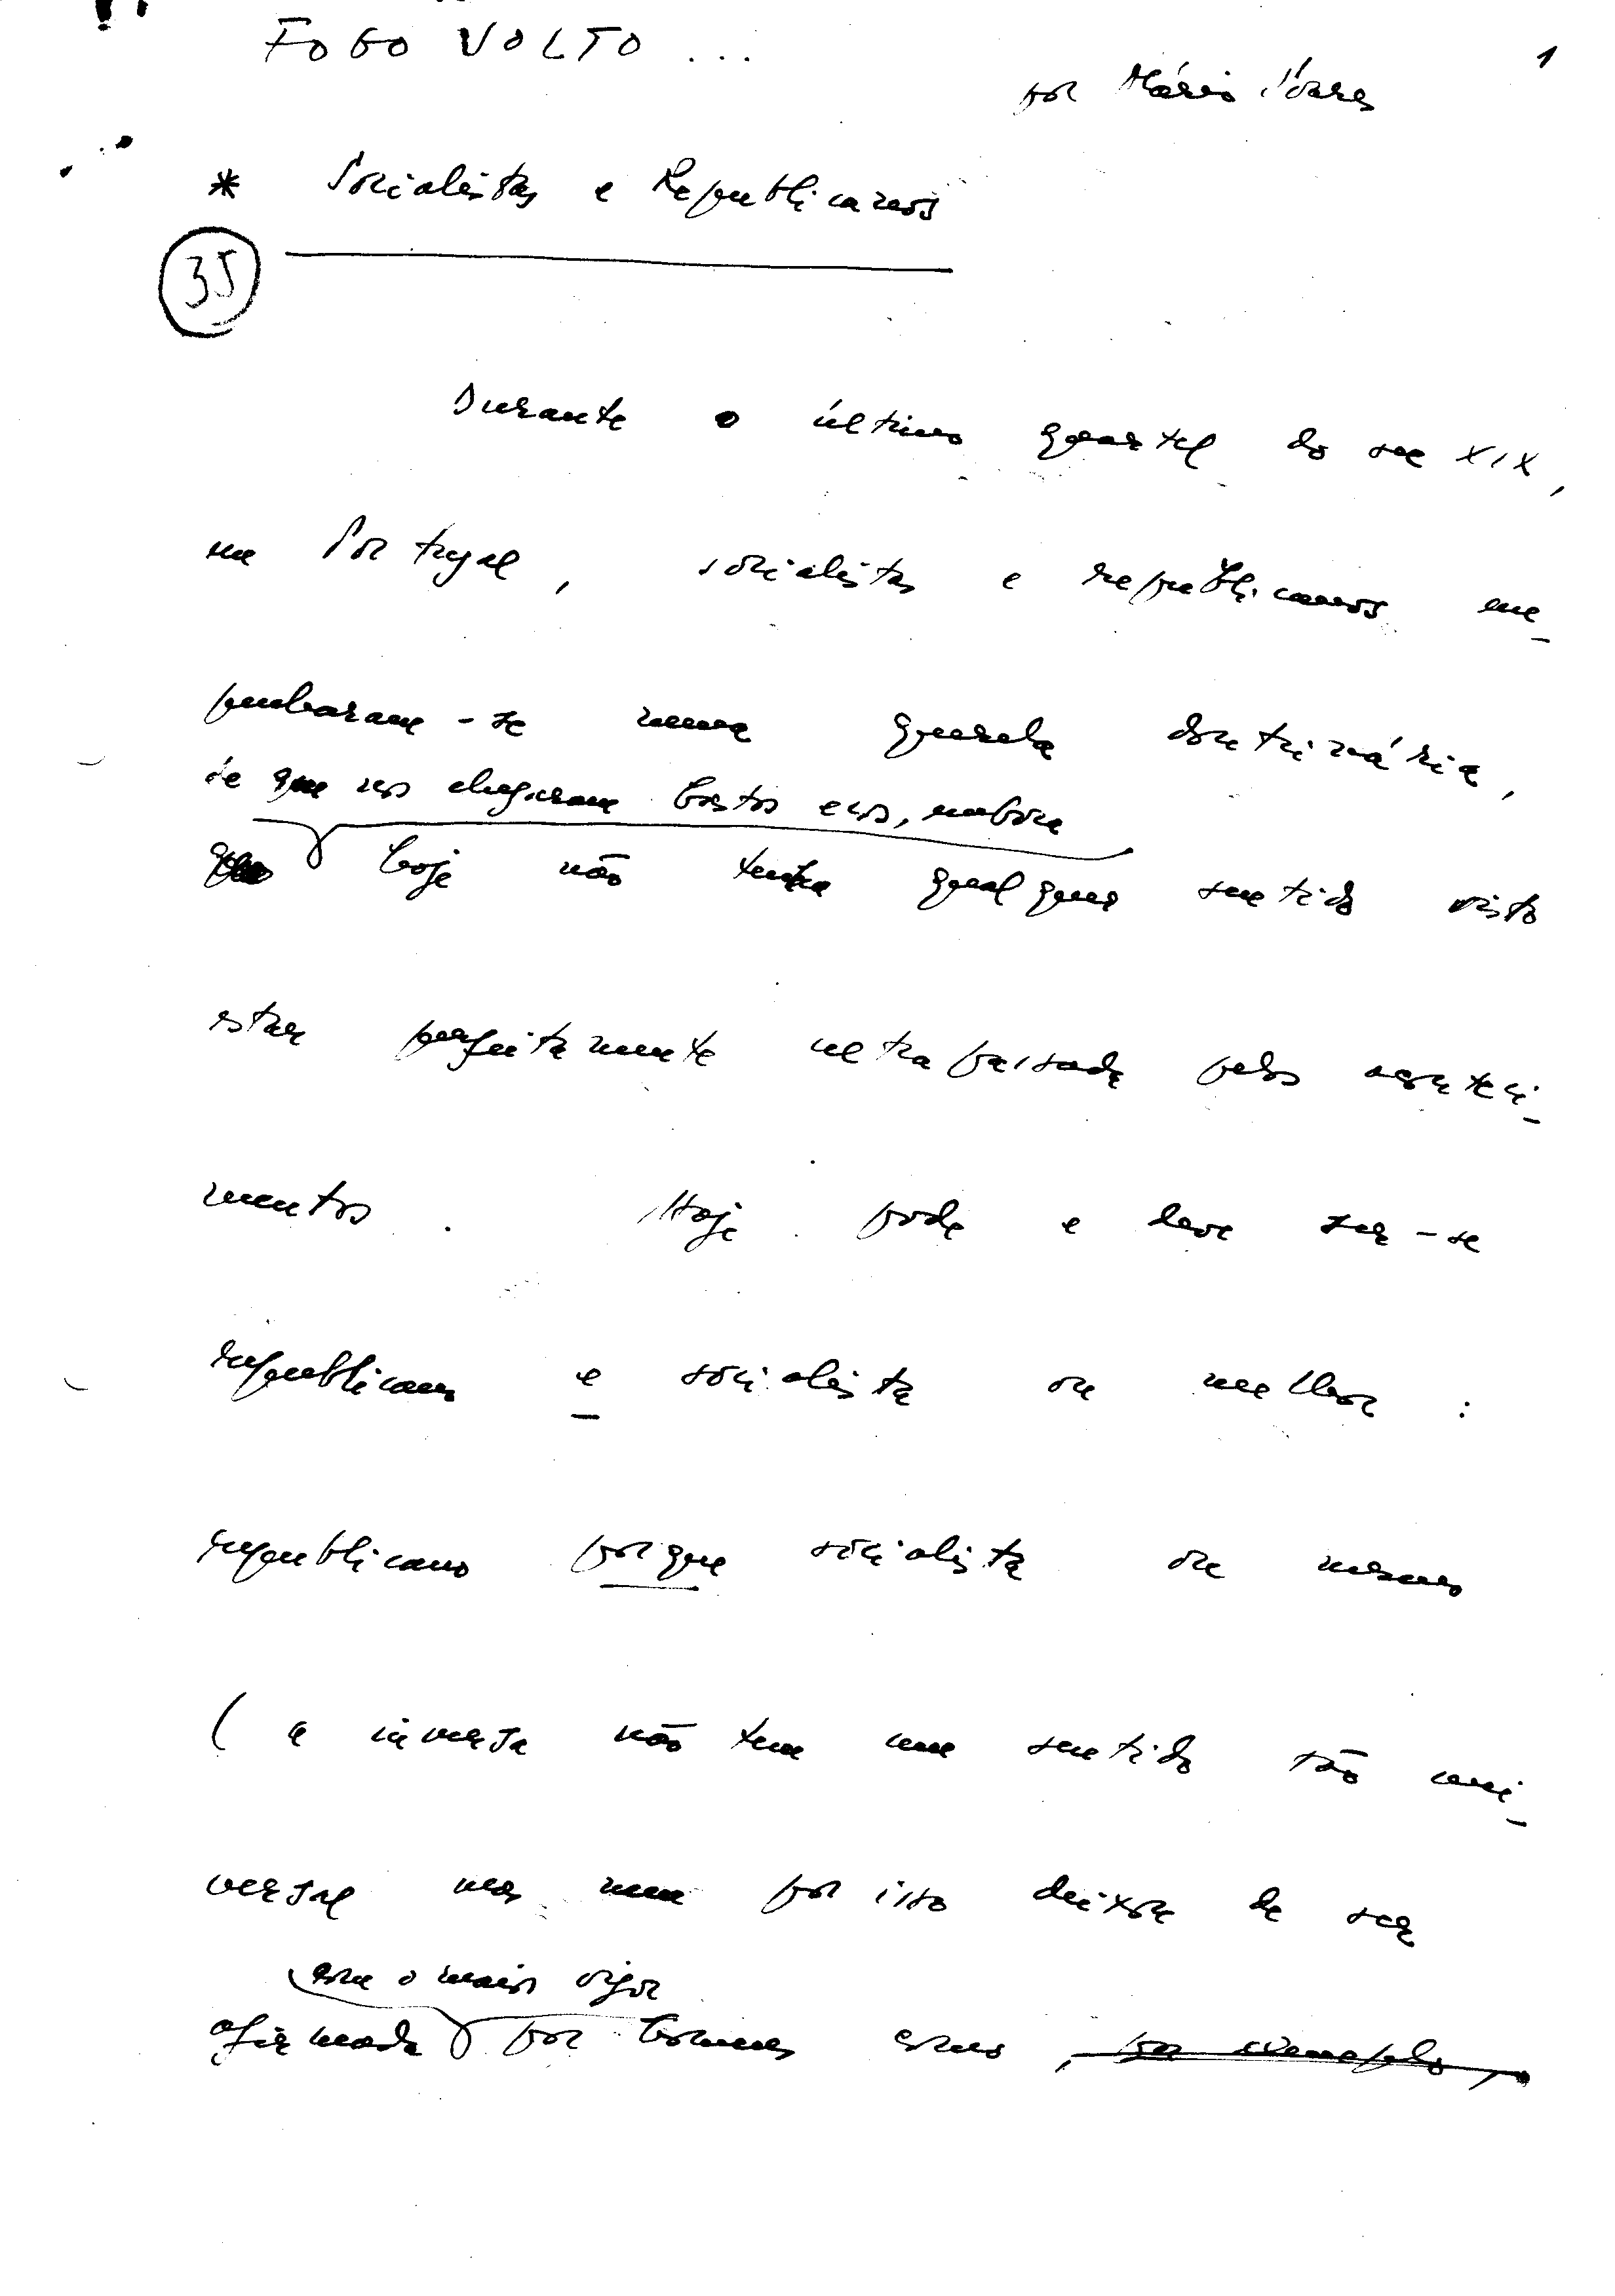 FOGO VOLTO ...
1
por Mário Soares
* Socialistas e Republicanos
35
Durante o último quartel do sec XIX,
em Portugal, socialistas e republicanos em-
penharam-se numa querela doutrinária,
de que nos chegaram bastos ecos, embora
hoje não tenha qualquer sentido visto
estar perfeitamente ultrapassada pelos aconteci-
mentos. Hoje pode e deve ser-se
republicano e socialista ou melhor:
republicano porque socialista ou mesmo
(a inversa não tem um sentido tão uni-
versal mas nem por isso deixou de ser
com o maior vigor
afirmada por homens como, por exemplo,